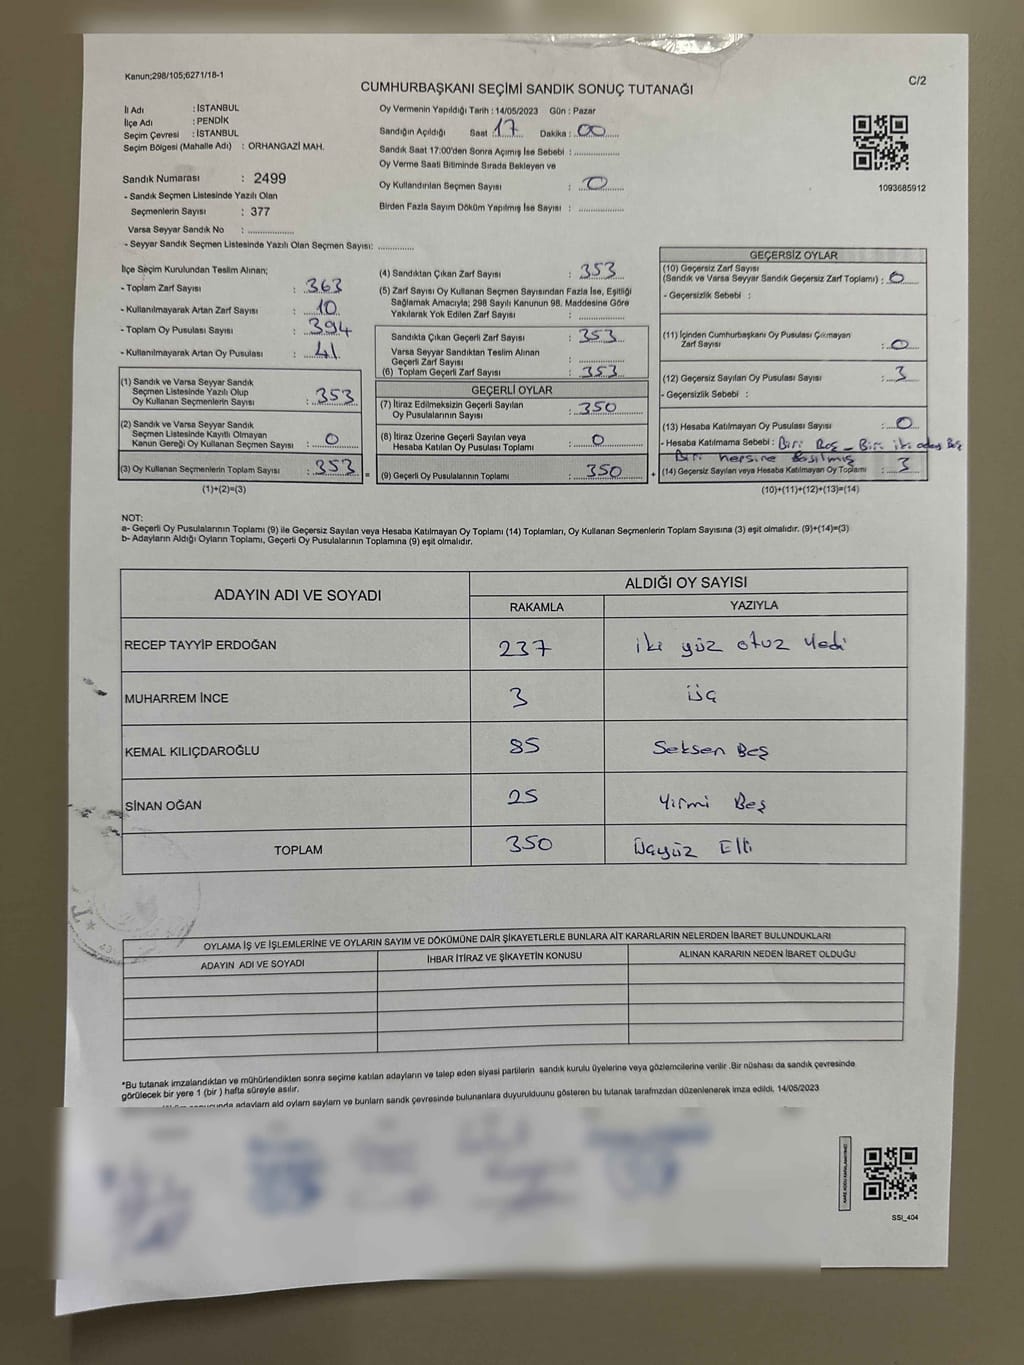 Kanun;298/105;6271/18-1
C/2
CUMHURBAŞKANI SEÇİMİ SANDIK SONUÇ TUTANAĞI
İl Adı : İSTANBUL
İlçe Adı : PENDİK
Seçim Çevresi : İSTANBUL
Seçim Bölgesi (Mahalle Adı) : ORHANGAZİ MAH.
Sandık Numarası : 2499
- Sandık Seçmen Listesinde Yazılı Olan
Seçmenlerin Sayısı : 377
Varsa Seyyar Sandık No : ..............
- Seyyar Sandık Seçmen Listesinde Yazılı Olan Seçmen Sayısı: ............
Oy Vermenin Yapıldığı Tarih : 14/05/2023 Gün : Pazar
Sandığın Açıldığı Saat 17 Dakika : 00
Sandık Saat 17:00'den Sonra Açımış İse Sebebi : ..............
Oy Verme Saati Bitiminde Sırada Bekleyen ve
Oy Kullandırılan Seçmen Sayısı : 0
Birden Fazla Sayım Döküm Yapılmış İse Sayısı : ..............
1093685912
İlçe Seçim Kurulundan Teslim Alınan;
- Toplam Zarf Sayısı : 363
- Kullanılmayarak Artan Zarf Sayısı : 10
- Toplam Oy Pusulası Sayısı : 394
- Kullanılmayarak Artan Oy Pusulası : 41
(1) Sandık ve Varsa Seyyar Sandık
Seçmen Listesinde Yazılı Olup
Oy Kullanan Seçmenlerin Sayısı : 353
(2) Sandık ve Varsa Seyyar Sandık
Seçmen Listesinde Kayıtlı Olmayan
Kanun Gereği Oy Kullanan Seçmen Sayısı : 0
(3) Oy Kullanan Seçmenlerin Toplam Sayısı : 353 =
(1)+(2)=(3)
(4) Sandıktan Çıkan Zarf Sayısı : 353
(5) Zarf Sayısı Oy Kullanan Seçmen Sayısından Fazla İse, Eşitliği
Sağlamak Amacıyla; 298 Sayılı Kanunun 98. Maddesine Göre
Yakılarak Yok Edilen Zarf Sayısı : ..............
Sandıkta Çıkan Geçerli Zarf Sayısı : 353
Varsa Seyyar Sandıktan Teslim Alınan
Geçerli Zarf Sayısı : ..............
(6) Toplam Geçerli Zarf Sayısı : 353
GEÇERLİ OYLAR
(7) İtiraz Edilmeksizin Geçerli Sayılan
Oy Pusulalarının Sayısı : 350
(8) İtiraz Üzerine Geçerli Sayılan veya
Hesaba Katılan Oy Pusulası Toplamı : 0
(9) Geçerli Oy Pusulalarının Toplamı : 350 +
GEÇERSİZ OYLAR
(10) Geçersiz Zarf Sayısı
(Sandık ve Varsa Seyyar Sandık Geçersiz Zarf Toplamı) : 0
- Geçersizlik Sebebi :
(11) İçinden Cumhurbaşkanı Oy Pusulası Çıkmayan
Zarf Sayısı : 0
(12) Geçersiz Sayılan Oy Pusulası Sayısı : 3
- Geçersizlik Sebebi :
(13) Hesaba Katılmayan Oy Pusulası Sayısı : 0
- Hesaba Katılmama Sebebi : Biri Boş - Biri iki adet Boş
Biri hepsine basılmış
(14) Geçersiz Sayılan veya Hesaba Katılmayan Oy Toplamı : 3
(10)+(11)+(12)+(13)=(14)
NOT:
a- Geçerli Oy Pusulalarının Toplamı (9) ile Geçersiz Sayılan veya Hesaba Katılmayan Oy Toplamı (14) Toplamları, Oy Kullanan Seçmenlerin Toplam Sayısına (3) eşit olmalıdır. (9)+(14)=(3)
b- Adayların Aldığı Oyların Toplamı, Geçerli Oy Pusulalarının Toplamına (9) eşit olmalıdır.
ADAYIN ADI VE SOYADI
ALDIĞI OY SAYISI
RAKAMLA YAZIYLA
RECEP TAYYİP ERDOĞAN 237 iki yüz otuz Yedi
MUHARREM İNCE 3 üç
KEMAL KILIÇDAROĞLU 85 Seksen Beş
SİNAN OĞAN 25 Yirmi Beş
TOPLAM 350 Üçyüz Elli
OYLAMA İŞ VE İŞLEMLERİNE VE OYLARIN SAYIM VE DÖKÜMÜNE DAİR ŞİKAYETLERLE BUNLARA AİT KARARLARIN NELERDEN İBARET BULUNDUKLARI
ADAYIN ADI VE SOYADI İHBAR İTİRAZ VE ŞİKAYETİN KONUSU ALINAN KARARIN NEDEN İBARET OLDUĞU
*Bu tutanak imzalandıktan ve mühürlendikten sonra seçime katılan adayların ve talep eden siyasi partilerin sandık kurulu üyelerine veya gözlemcilerine verilir .Bir nüshası da sandık çevresinde
görülecek bir yere 1 (bir ) hafta süreyle asılır.
adayların aldı oyların sayların ve bunların sandık çevresinde bulunanlara duyurulduunu gösteren bu tutanak tarafmzdan düzenlenerek imza edildi. 14/05/2023
SSI_404